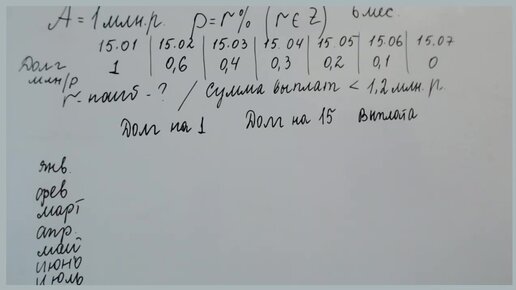 A = 1 млн.р. p = r% (r ∈ Z) 6 мес.
15.01 15.02 15.03 15.04 15.05 15.06 15.07
Долг млн/р 1 0,6 0,4 0,3 0,2 0,1 0
r - наиб - ? / Сумма выплат < 1,2 млн.р.
Долг на 1 Долг на 15 Выплата
янв.
фев
март
апр.
май
июнь
июль